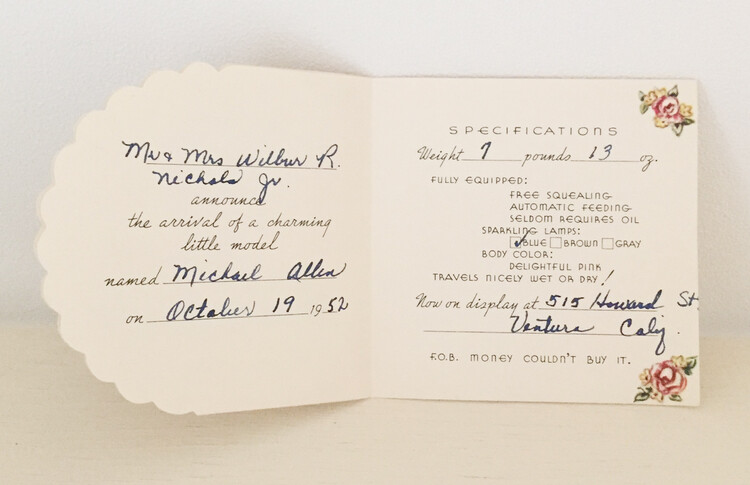 Mr & Mrs Wilbur R.
Nichols Jr.
announce
the arrival of a charming
little model
named Michael Allen
on October 19 1952
SPECIFICATIONS
Weight 7 pounds 13 oz.
FULLY EQUIPPED:
FREE SQUEALING
AUTOMATIC FEEDING
SELDOM REQUIRES OIL
SPARKLING LAMPS:
BLUE BROWN GRAY
BODY COLOR:
DELIGHTFUL PINK
TRAVELS NICELY WET OR DRY!
Now on display at 515 Howard St.
Ventura Calif.
F.O.B. MONEY COULDN'T BUY IT.